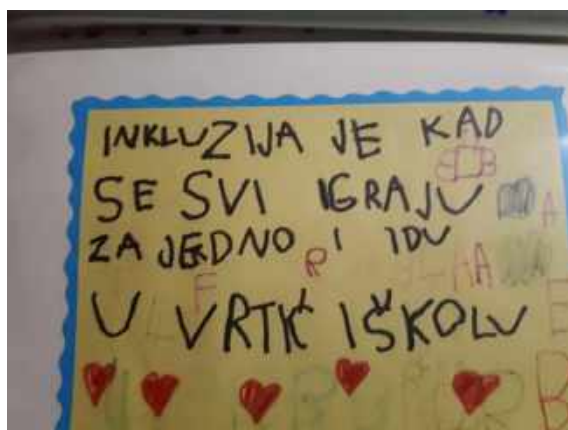 INKLUZIJA JE KAD
SE SVI IGRAJU
ZA JEDNO I IDU
U VRTIĆ I ŠKOLU